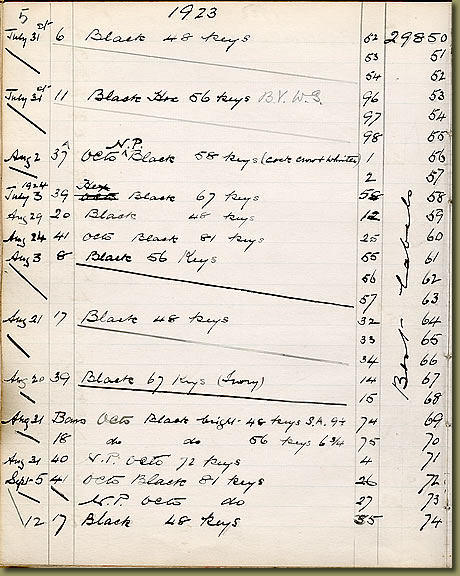 5 1923
July 31st 6 Black 48 keys 52 29850
53 51
54 52
July 31st 11 Black Hex 56 keys B.V.W.S. 96 53
97 54
98 55
Aug 2 37A Octo N.P. Black 58 keys ( 1 56
2 57
1924
July 3 39 Hex Black 67 keys 58 58
Aug 29 20 Black 48 keys 12 59
Aug 24 41 Octo Black 81 keys 25 60
Aug 3 8 Black 56 Keys 55 61
56 62
57 63
Aug 21 17 Black 48 keys 32 64
33 65
34 66
Aug 20 39 Black 67 Keys (Ivory) 14 67
15 68
Aug 21 Bass Octo Black bright 48 keys 74 69
18 do do 56 keys 6 3/4 75 70
Aug 31 40 N.P. Octo 72 keys 4 71
Sept 5 41 Octo Black 81 keys 26 72
N.P. Octo do 27 73
12 17 Black 48 keys 35 74
Best Labels